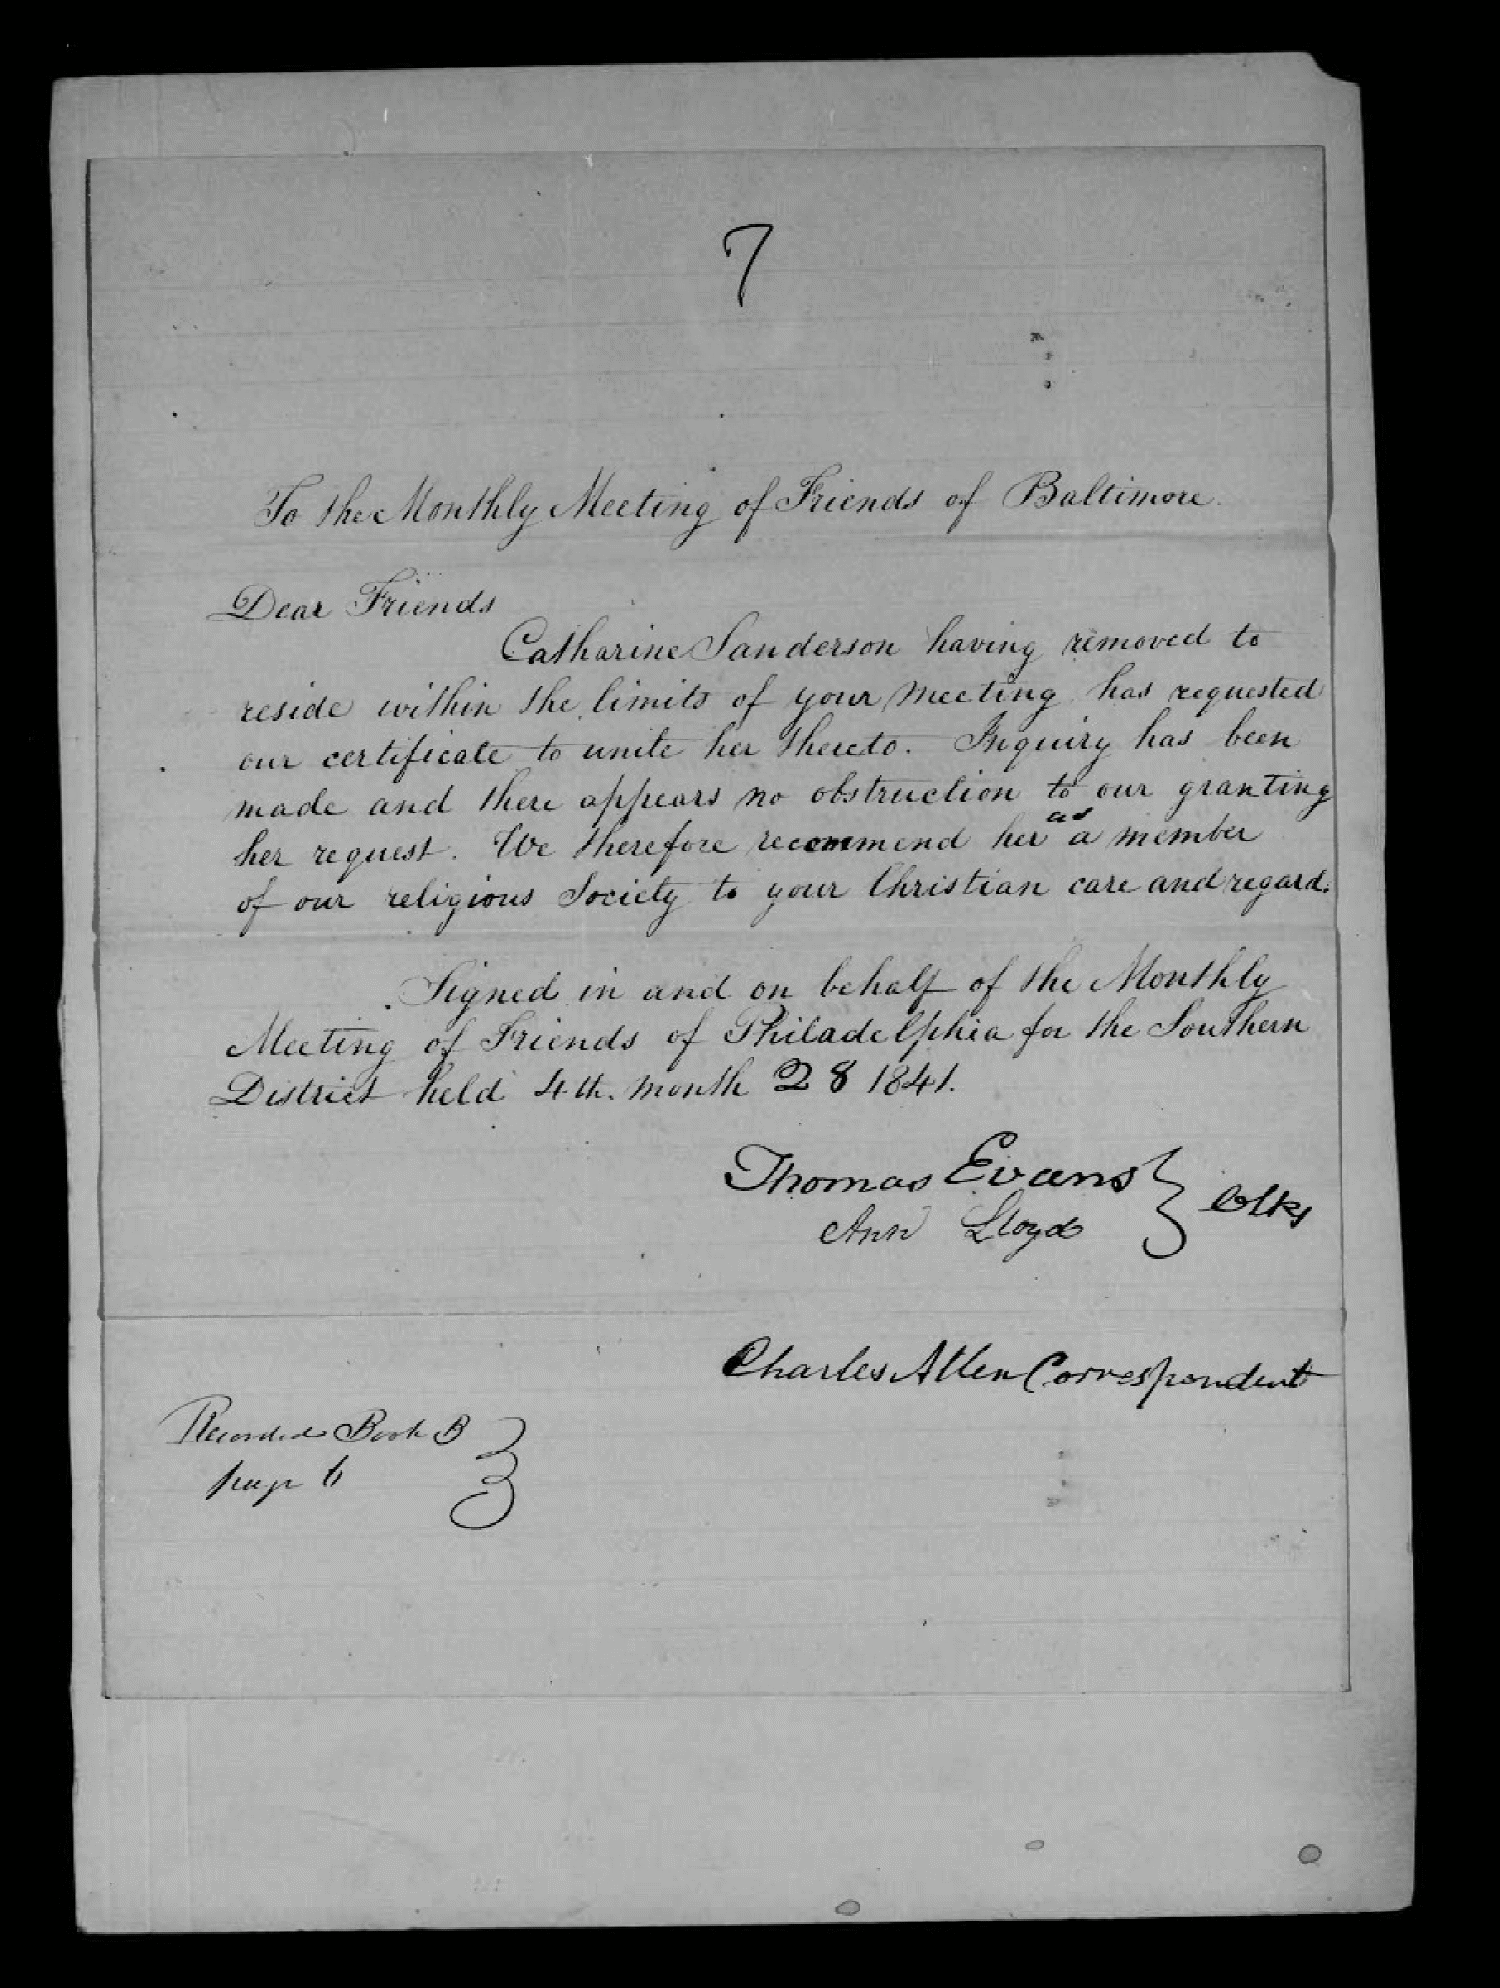 7
To the Monthly Meeting of Friends of Baltimore.
Dear Friends
Catharine Sanderson having removed to
reside within the limits of your Meeting has requested
our certificate to unite her thereto. Inquiry has been
made and there appears no obstruction to our granting
her request. We therefore recommend her as a member
of our religious Society to your Christian care and regard.
Signed in and on behalf of the Monthly
Meeting of Friends of Philadelphia for the Southern
District held 4th. month 28 1841.
Thomas Evans } Clks
Ann Lloyd
Charles Allen Correspondent
Recorded Book B
page 6